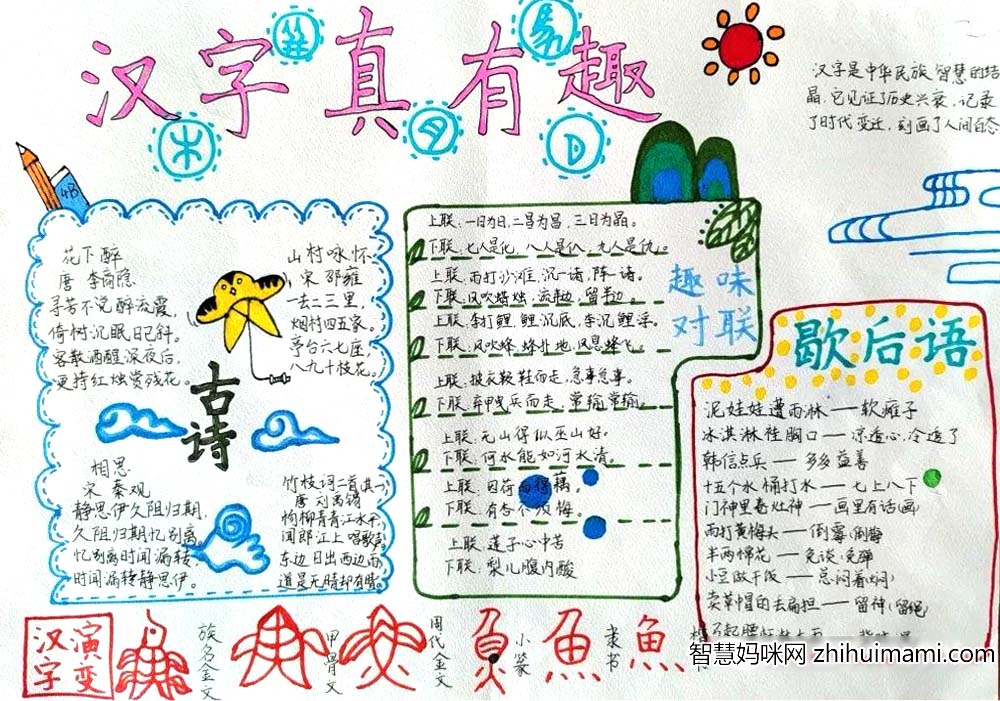 汉字真有趣
汉字是中华民族智慧的结
晶,它见证了历史兴衰,记录
了时代变迁,刻画了人间百态
4B
花下醉
唐 李商隐
寻芳不觉醉流霞,
倚树沉眠日已斜。
客散酒醒深夜后,
更持红烛赏残花。
山村咏怀
宋 邵雍
一去二三里,
烟村四五家。
亭台六七座,
八九十枝花。
古诗
相思
宋 秦观
静思伊久阻归期,
久阻归期忆别离。
忆别离时闻漏转,
时闻漏转静思伊。
竹枝词二首其一
唐 刘禹锡
杨柳青青江水平
闻郎江上唱歌声
东边日出西边雨
道是无晴却有晴。
趣味
对联
上联:一日为日,二昌为昌,三日为晶。
下联:七人是化,八人是仈,九人是仇。
上联:雨打沙滩,沉一诸,陈一诸。
下联:风吹蜡烛,流半边,留半边。
上联:李打鲤,鲤沉底,李沉鲤浮。
下联:风吹蜂,蜂扑地,风息蜂飞。
上联:披衣靸鞋而走,急事急事。
下联:弃甲曳兵而走,常输常输。
上联:无山得似巫山好。
下联:何水能如河水清。
上联:因荷而得藕。
下联:有杏不须梅。
上联:莲子心中苦
下联:梨儿腹内酸
歇后语
泥娃娃遭雨淋——软瘫子
冰淇淋性胸口——凉透心,冷透了
韩信点兵——多多益善
十五个水桶打水——七上八下
门神里卷灶神——画里有话(画)
雨打黄梅头——倒霉(倒梅)
半两棉花——免谈(免弹)
小豆做干饭——总闷着(焖)
卖草帽的丢扁担——留神(留绳)
汉字
演变
族名金文
甲骨文
周代金文
小篆
隶书
智慧妈咪网 zhihuimami.com